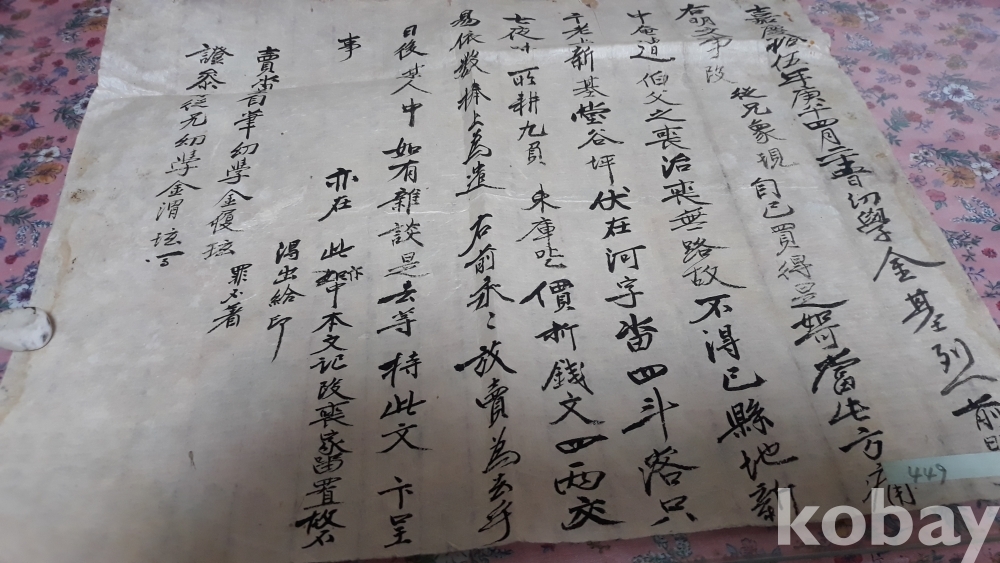 嘉慶拾伍年庚午四月二十日幼學金基列 前日
右明文事段 從兄象現自己買得是如 當此方
伯父之喪治喪無路故不得已縣地新
老 新基堂谷坪伏在河字畓四斗落只
七夜味 所耕九負 朱庫乙 價折錢文四兩交
易依數捧上為遣 右前永永放賣為去乎
日後某人中如有雜談是去等 持此文卞呈
事
亦在 此中本文記段喪家留置故不
得出給印
賣畓自筆幼學金 罪不著
證參從兄幼學金渭
449
kobay